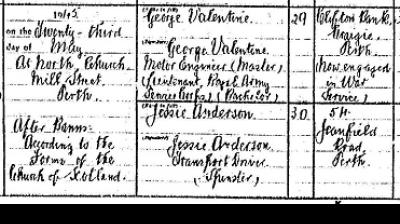 1915
on the Twenty-third
day of May
At North Church
Mill Street
Perth.
After Banns
According to the
Forms of the
Church of Scotland.
George Valentine.
George Valentine
Motor Engineer (Master)
(Lieutenant, Royal Army
Service Corps) (Bachelor)
Jessie Anderson.
Jessie Anderson
Transport Driver
(Spinster)
29
30
Clifton Bank,
Craigie,
Perth
(Now engaged
in War
Service)
54
Jeanfield
Road,
Perth.